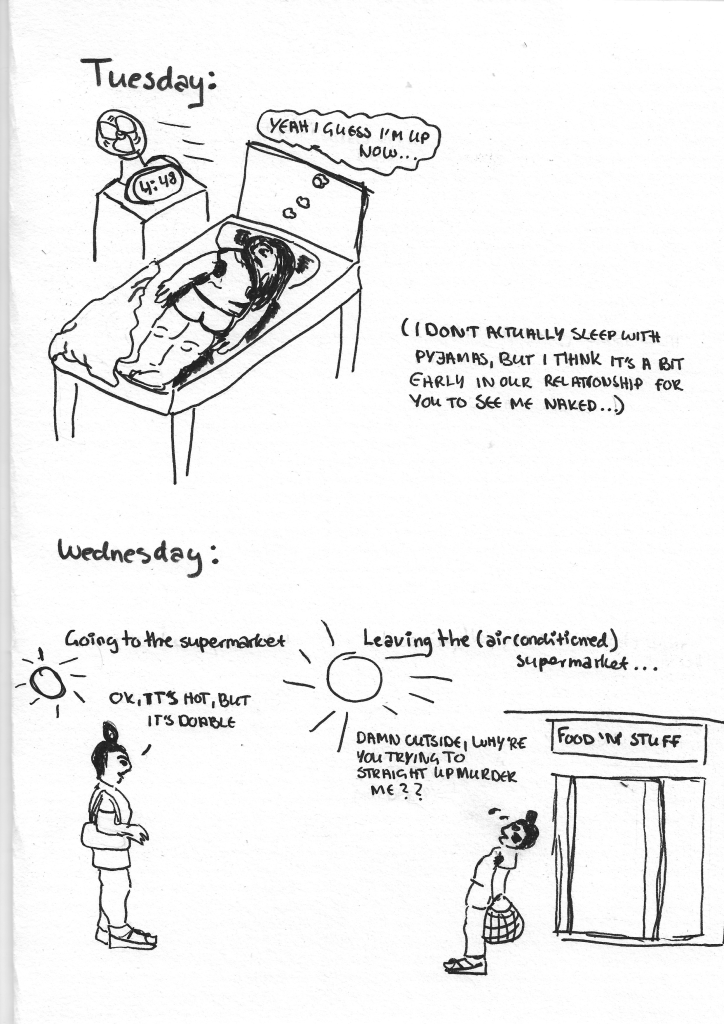 Tuesday:
YEAH I GUESS I'M UP
NOW...
4:48
(I DON'T ACTUALLY SLEEP WITH
PYJAMAS, BUT I THINK IT'S A BIT
EARLY IN OUR RELATIONSHIP FOR
YOU TO SEE ME NAKED...)
Wednesday:
Going to the supermarket
OK, IT'S HOT, BUT
IT'S DOABLE
Leaving the (airconditioned)
supermarket...
DAMN OUTSIDE, WHY'RE
YOU TRYING TO
STRAIGHT UP MURDER
ME??
FOOD 'N' STUFF